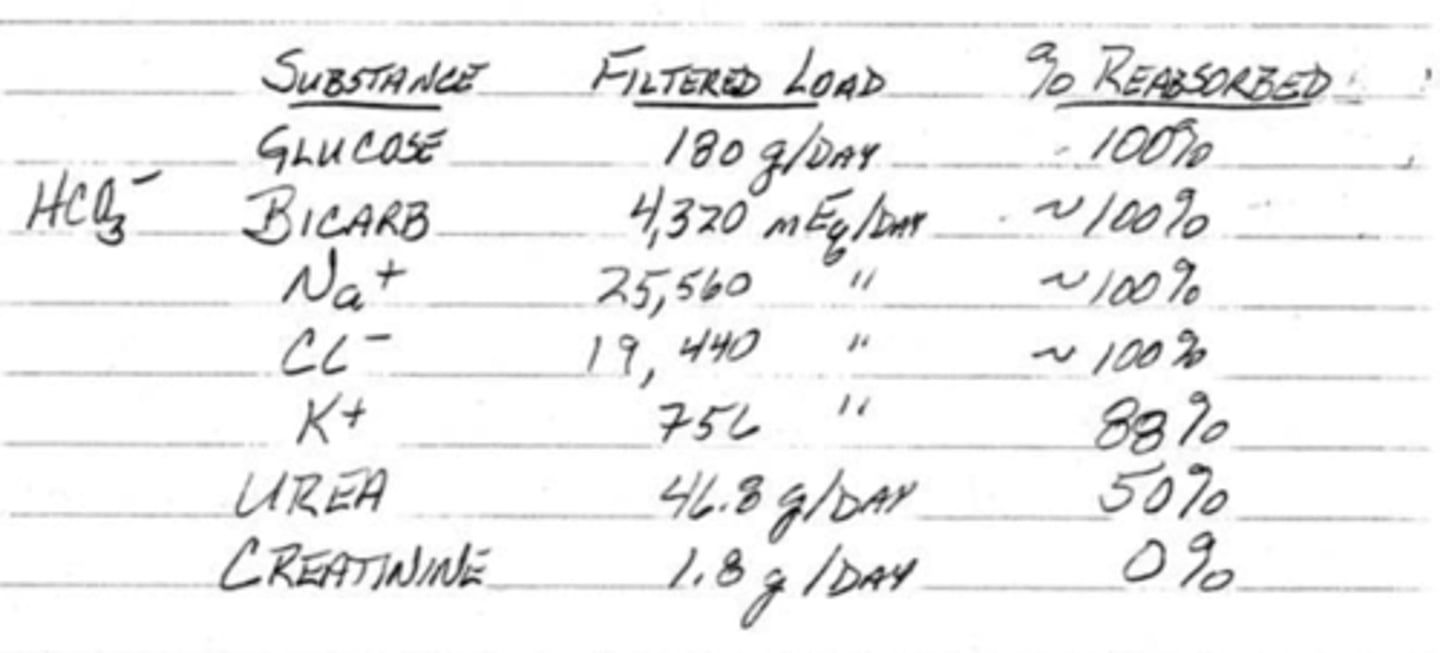 SUBSTANCE FILTERED LOAD % REABSORBED
GLUCOSE 180 g/DAY 100%
HCO3⁻ BICARB 4,320 mEq/DAY ~100%
Na⁺ 25,560 " ~100%
CL⁻ 19,440 " ~100%
K+ 756 " 88%
UREA 46.8 g/DAY 50%
CREATININE 1.8 g/DAY 0%